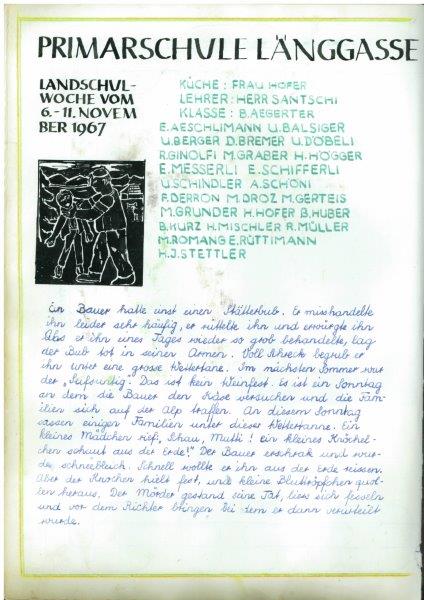 PRIMARSCHULE LÄNGGASSE
LANDSCHUL-
WOCHE VOM
6.-11. NOVEM
BER 1967
KÜCHE: FRAU HOFER
LEHRER: HERR SANTSCHI
KLASSE: B.AEGERTER
E.AESCHLIMANN U.BALSIGER
U.BERGER D.BREMER U.DÖBELI
R.GINOLFI M.GRABER H.HÖGGER
E.MESSERLI E.SCHIFFERLI
U.SCHINDLER A.SCHÖNI
F.DERRON M.DROZ M.GERTEIS
M.GRUNDER H.HOFER B.HUBER
B.KURZ H.MISCHLER R.MÜLLER
M.ROMANG E.RÜTTIMANN
H.J.STETTLER
Ein Bauer hatte einen Stätterbub. Er misshandelte
ihn leider sehr häufig, er rüttelte ihn und erwürgte ihn
Als er ihn eines Tages wieder so grob behandelte, lag
der Bub tot in seinen Armen. Voll Schreck begrub er
ihn unter eine grosse Wettertanne. Im nächsten Sommer war
der Das ist kein Weinfest. Es ist ein Sonntag
an dem die Bauer den Käse versuchen und die Fam-
ilien sich auf der Alp treffen. An diesem Sonntag
sassen einigen Familien unter dieser Wettertanne. Ein
kleines Mädchen rief: Schau, Mutti! ein kleines Knöchel-
chen schaut aus der Erde!" Der Bauer erschrak und wur-
de schneebleich. Schnell wollte er ihn aus der Erde reissen.
Aber der Knochen hielt fest, und kleine Bluttröpfchen quol-
len heraus. Der Mörder gestand seine Tat, liess sich fesseln
und vor dem Richter bringen bei dem er dann verurteilt
wurde.